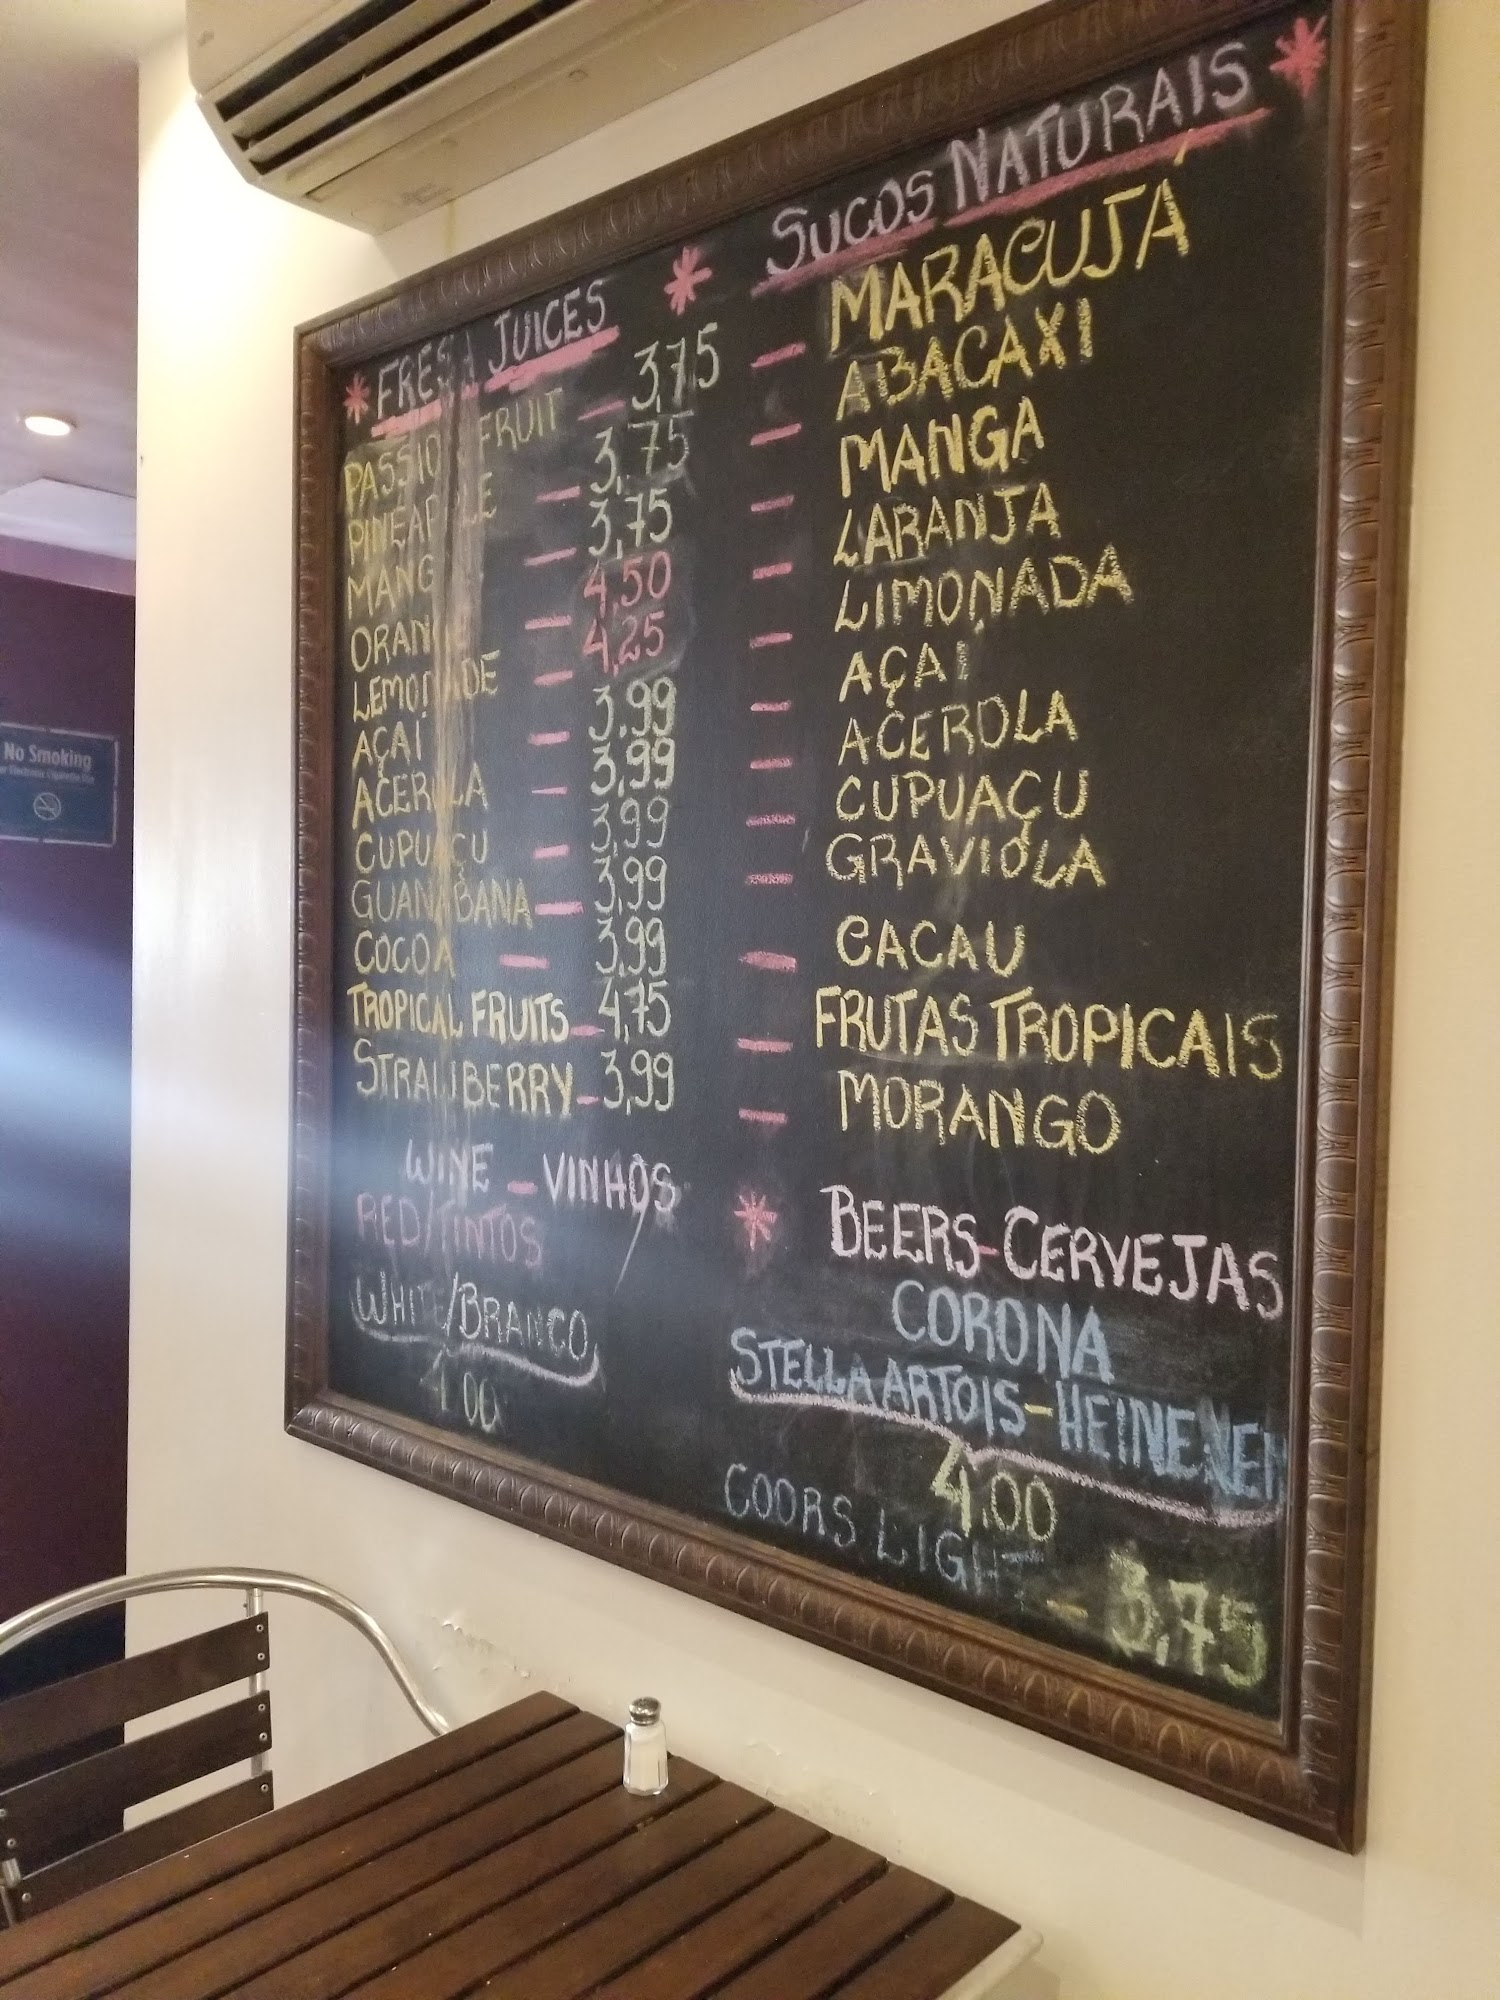 * FRESH JUICES * SUCOS NATURAIS *
PASSION FRUIT - 3,75 - MARACUJÁ
PINEAPPLE - 3,75 - ABACAXI
MANGO - 3,75 - MANGA
ORANGE - 4,50 - LARANJA
LEMONADE - 4,25 - LIMONADA
AÇAÍ - 3.99 - AÇAI
ACEROLA - 3,99 - ACEROLA
CUPUAÇU - 3,99 - CUPUAÇU
GUANABANA - 3,99 - GRAVIOLA
COCOA - 3,99 - CACAU
TROPICAL FRUITS - 4,75 - FRUTAS TROPICAIS
STRAWBERRY - 3,99 - MORANGO
WINE - VINHOS
RED/TINTOS
WHITE/BRANCO
4.00
* BEERS - CERVEJAS
CORONA
STELLA ARTOIS - HEINENEN
4.00
COORS LIGHT - 3,75
No Smoking